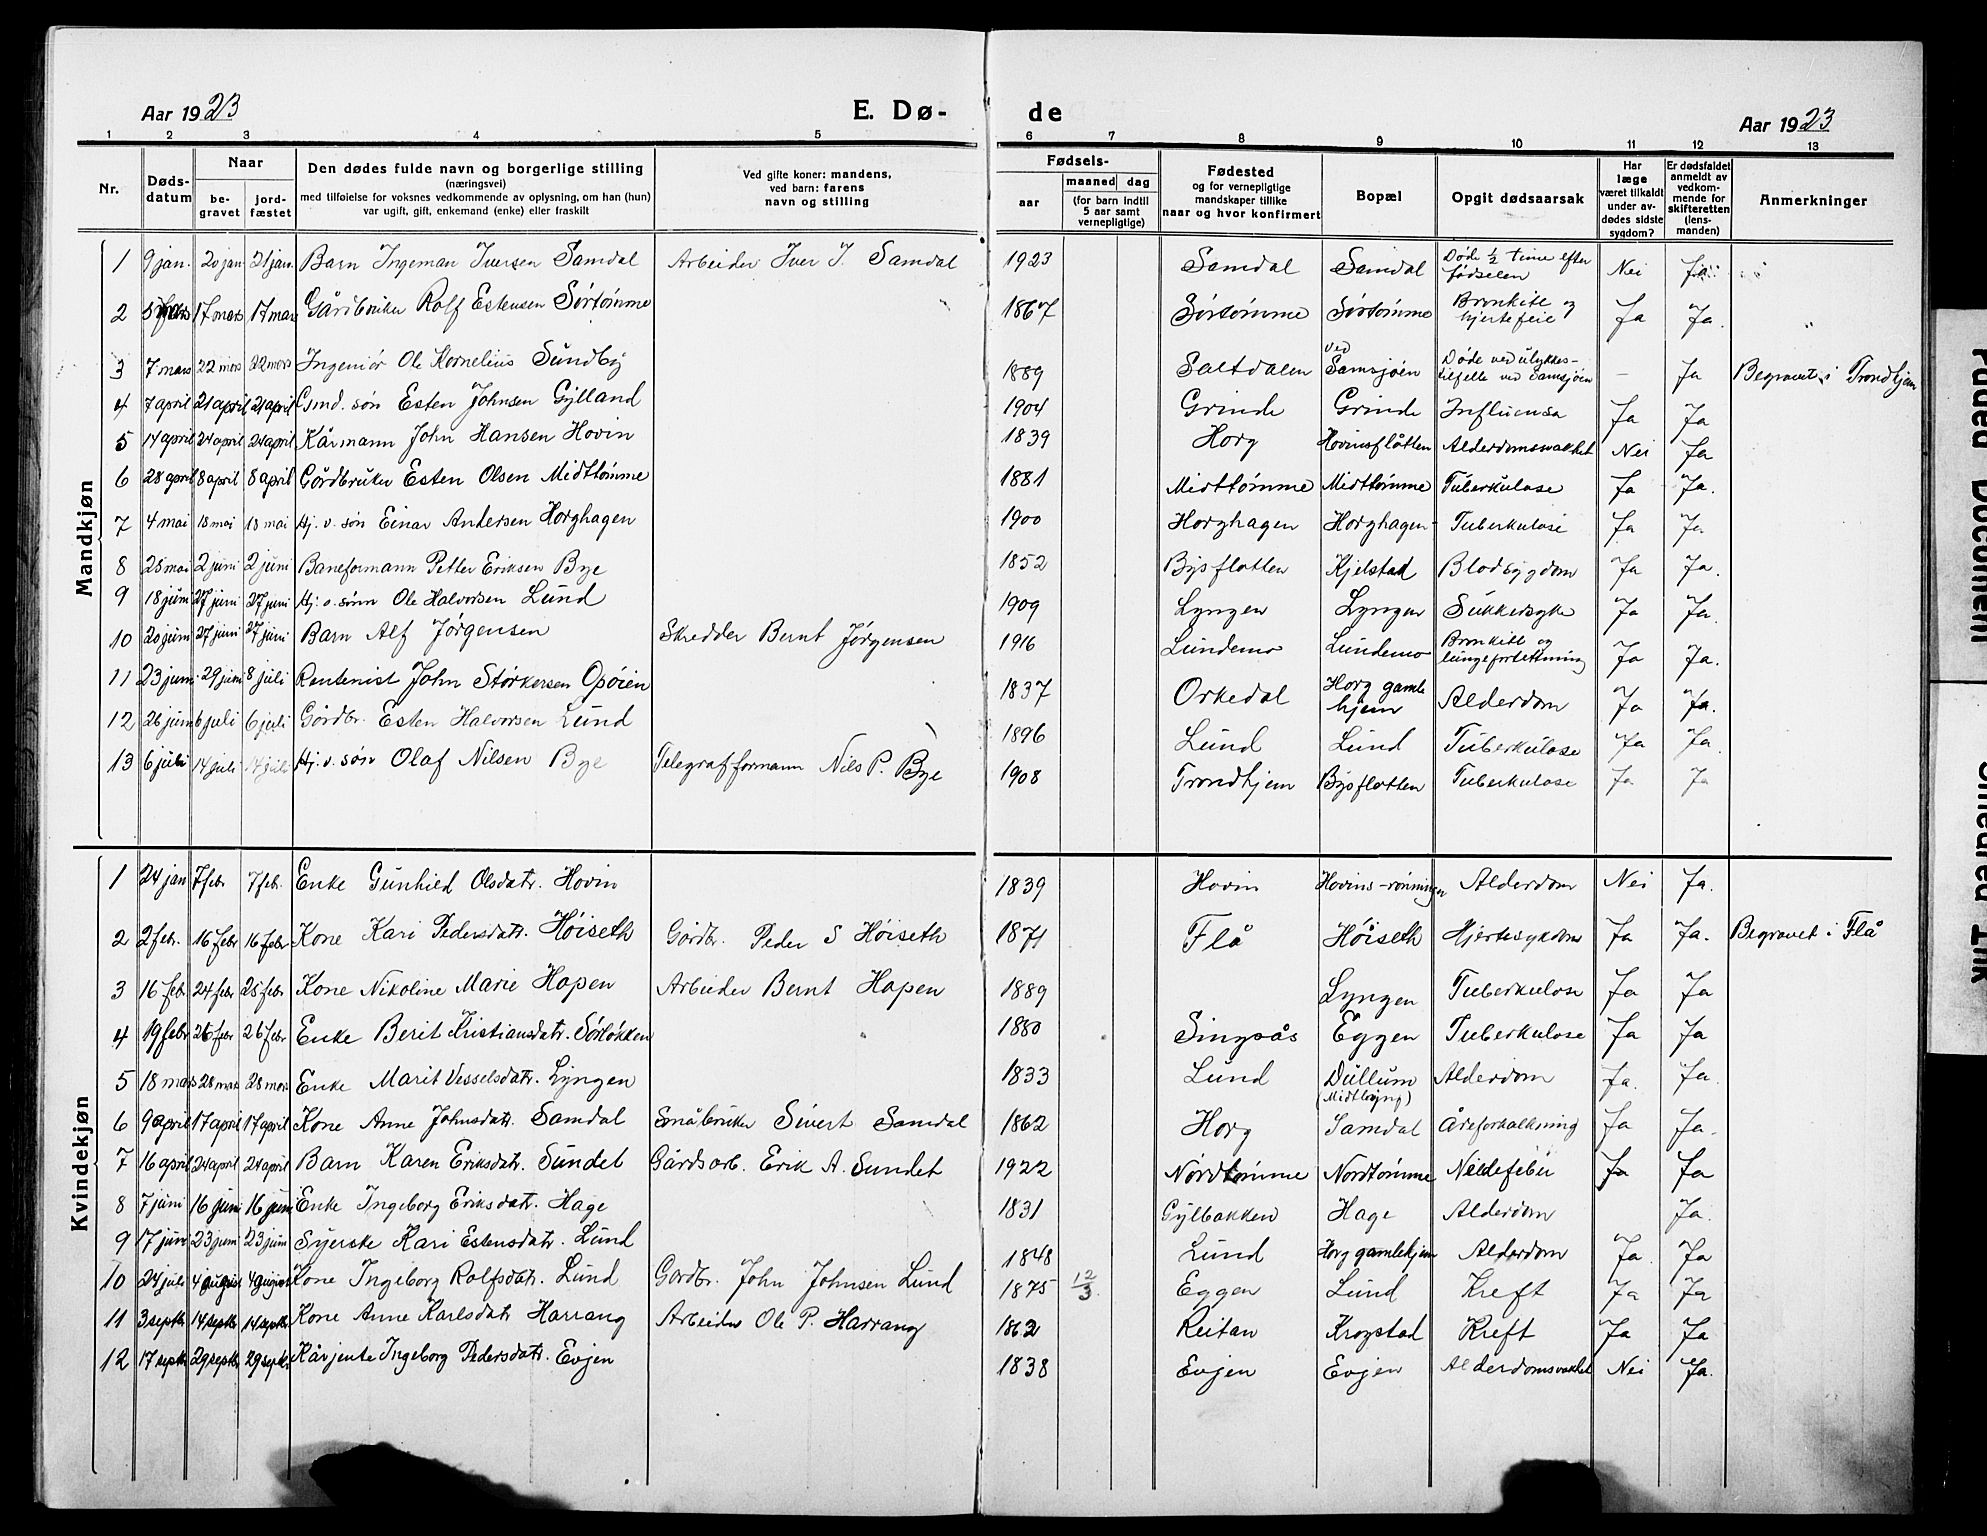 Aar 1923
E. Dø-
de
Aar 1923
1 2 3 4 5 6 7 8 9 10 11 12 13
Nr.
Døds-
datum
Naar
be-
gravet
jord-
fæstet
Den dødes fulde navn og borgerlige stilling
(næringsvei)
med tilføielse for voksnes vedkommende av oplysning, om han (hun)
var ugift, gift, enkemand (enke) eller fraskilt
Ved gifte koner: mandens,
ved barn: farens
navn og stilling
Fødsels-
aar
maaned dag
(for barn indtil
5 aar samt
vernepligtige)
Fødested
og for vernepligtige
mandskaper tillike
naar og hvor konfirmert
Bopæl
Opgit dødsaarsak
Har
læge
været tilkaldt
under av-
dødes sidste
sygdom?
Er dødsfaldet
anmeldt av
vedkom-
mende for
skifteretten
(lens-
manden)
Anmerkninger
Mandkjøn
1 9 jan. 20 jan 21 jan. Barn Ingeman Iversen Samdal Arbeider Iver J. Samdal 1923 Samdal Samdal Døde ½ time efter fødselen Nei Ja
2 17 mars 17 mars Gårdbruker Rolf Estensen Sørtømme 1867 Sørtømme Sørtømme Bronkitt og hjertefeil Ja Ja.
3 7 mars 22 mars 22 mars Ingeniør Ole Kornelius Sundby 1889 Saltdalen ved Samsjøen Døde ved ulykkes-tilfelle ved Samsjøen — Ja Begravet i Trondhjem
4 7 april 21 april 21 april Gmd. søn Esten Johnsen Gylland 1904 Grinde Grinde Influensa Ja Ja
5 14 april 24 april 24 april Kårmann John Hansen Hovin 1839 Horg Hovinsflåtten Alderdomsvakhet Nei Ja
6 28 april 8 april 8 april Gårdbruker Esten Olsen Midttømme 1881 Midttømme Midttømme Tuberkulose Ja Ja.
7 4 mai 18 mai 18 mai Hj. v. søn Einar Andersen Horghagen 1900 Horghagen Horghagen Tuberkulose Ja Ja
8 25 mai 2 juni 2 juni Baneformann Petter Eriksen Bye 1852 Bysflotten Kjelstad Blodsygdom Ja Ja.
9 18 juni 27 juni 27 juni Hj. v. sønn Ole Halvorsen Lund 1909 Lyngen Lyngen Sukkersyke Ja Ja.
10 20 juni 27 juni 27 juni Barn Alf Jørgensen Skredder Bernt Jørgensen 1916 Lundemo Lundemo Bronkitt og lungefortettning Ja Ja.
11 23 juni 29 juni 8 juli Rentenist John Størkersen Opøien 1837 Orkedal Horg gamlehjem Alderdom Ja Ja.
12 26 juni 6 juli 6 juli Gårdbr. Esten Halvorsen Lund 1896 Lund Lund Tuberkulose Ja Ja.
13 6 juli 14 juli 14 juli Hj. v. søn Olaf Nilsen Bye Telegrafformann Nils P. Bye 1908 Trondhjem Bysflotten Tuberkulose Ja Ja
Kvindekjøn
1 24 jan 7 febr 7 febr. Enke Gunhild Olsdatr. Hovin 1839 Hovin Hovins-rønningen Alderdom Nei Ja.
2 2 febr. 16 febr 16 febr Kone Kari Pedersdatr. Høiseth Gårdbr. Peder S Høiseth 1871 Flå Høiseth Hjertesykdom Ja Ja. Begravet i Flå
3 16 febr 24 febr 25 febr Kone Nikoline Marie Hapen Arbeider Bernt Hapen 1889 Lyngen Tuberkulose Ja Ja
4 19 febr 26 febr 26 febr Enke Berit Kristiansdatr. Sørløkken 1880 Singsås Eggen Tuberkulose Ja Ja
5 18 mars 28 mars 28 mars Enke Marit Vesselsdatr. Lyngen 1833 Lund Dullum (Midtlyng) Alderdom Ja. Ja.
6 9 april 17 april 17 april Kone Anne Johnsdatr. Samdal Småbruker Sivert Samdal 1862 Horg Samdal Åreforkalkning Ja Ja.
7 16 april 24 april 24 april Barn Karen Eriksdatr. Sundet Gårdsarb. Erik A. Sundet 1922 Nordtømme Nordtømme Neldefeber Ja Ja
8 7 juni 16 juni 16 juni Enke Ingeborg Eriksdatr. Hage 1831 Gylbakken Hage Alderdom Ja.
9 17 juni 23 juni 23 juni Syerske Kari Estensdatr. Lund 1848 Lund Horg gamlehjem Alderdom Ja. Ja
10 24 juli 4 august 4 august Kone Ingeborg Rolfsdatr. Lund Gårdbr. John Johnsen Lund 1875 12/3 Eggen Lund Kreft Ja Ja
11 3 septbr 14 septbr 14 septbr Kone Anne Karlsdatr Harrang Arbeider Ole P. Harrang 1862 Reitan Krogstad Kreft Ja Ja
12 17 septbr 29 septbr 29 septbr. Kårjente Ingeborg Pedersdatr. Evjen 1838 Evjen Evjen Alderdomsvakhet Nei Ja.
Faded Document
Smeared Ink